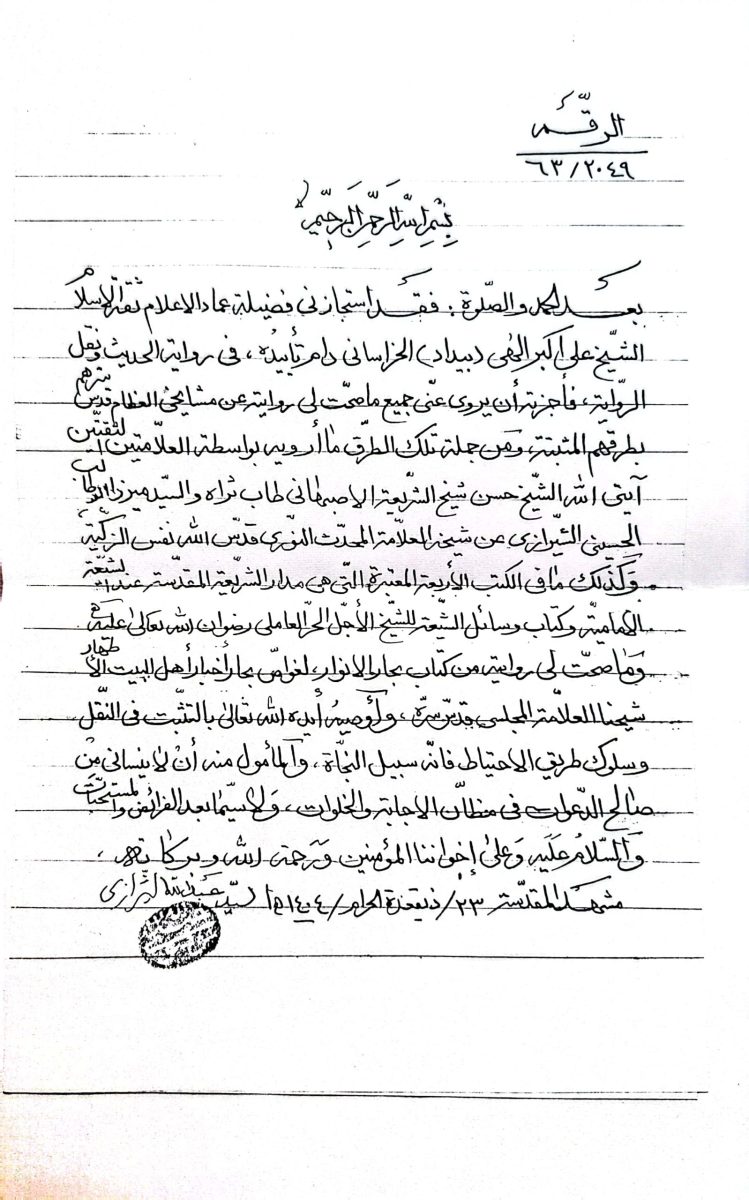 الرقم
٦٣/٢٠٤٩
بِسْمِ اللهِ الرَّحْمٰنِ الرَّحِيْمِ
بعد الحمد والصّلوة : فقد استجازني فضيلة عماد الاعلام ثقة الاسلام
الشيخ علي اكبر الهي (بيداد) الخراساني دام تأييده ، في رواية الحديث ونقل
الرّواية ، فأجزته أن يروي عنّي جميع ما صحّت لي رواية عن مشايخي العظام قدس سرهم
بطرقهم المثبتة ، ومن جملة تلك الطرّق ما أرويه بواسطة العلّامتين الثقتين
آيتي الله الشّيخ حسن شيخ الشّريعة الاصبهاني طاب ثراه والسّيد ميرزا
الحسيني الشّيرازي عن شيخنا العلّامة المحدث النّوري قدّس الله نفس الزكيّة
وكذلك ما في الكتب الأربعة المعتبرة الّتي هي مدار الشّريعة المقدّسة عند الشّيعة
الاماميّة وكتاب وسائل الشّيعة للشّيخ الأجل الحرّ العاملي رضوان الله تعالى عليه
وما صحّت لي رواية من كتاب بحار الانوار ، لغوّاص بحار أخبار أهل البيت الأطهار
شيخنا العلّامة المجلسي قدّس سرّه ، وأوصيه أيده الله تعالى بالتّثبت في النّقل
وسلوك طريق الاحتياط فانّه سبيل النّجاة ، والمأمول منه أنْ لا ينساني مِنْ
صالح الدّعوات في مظانّ الاجابة والخلوات ، ولا سيّما بعد الفرائض والمستحبّات
والسّلام عليه وعلى إخواننا المؤمنين ورحمة الله وبركاته ،
مشهد المقدّسة ٢٣/ ذيقعدة الحرام / ١٤٠٤ سيّد عبد الله الشيرازي